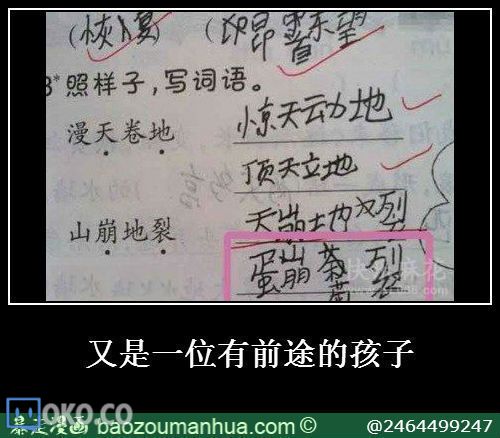 (恢复) (印昂首东望)
3*照样子,写词语。
漫天卷地 惊天动地
顶天立地
山崩地裂 天崩地裂
蛋崩菊裂
又是一位有前途的孩子
MOKO.CO
暴走漫画 baozoumanhua.com © @2464499247